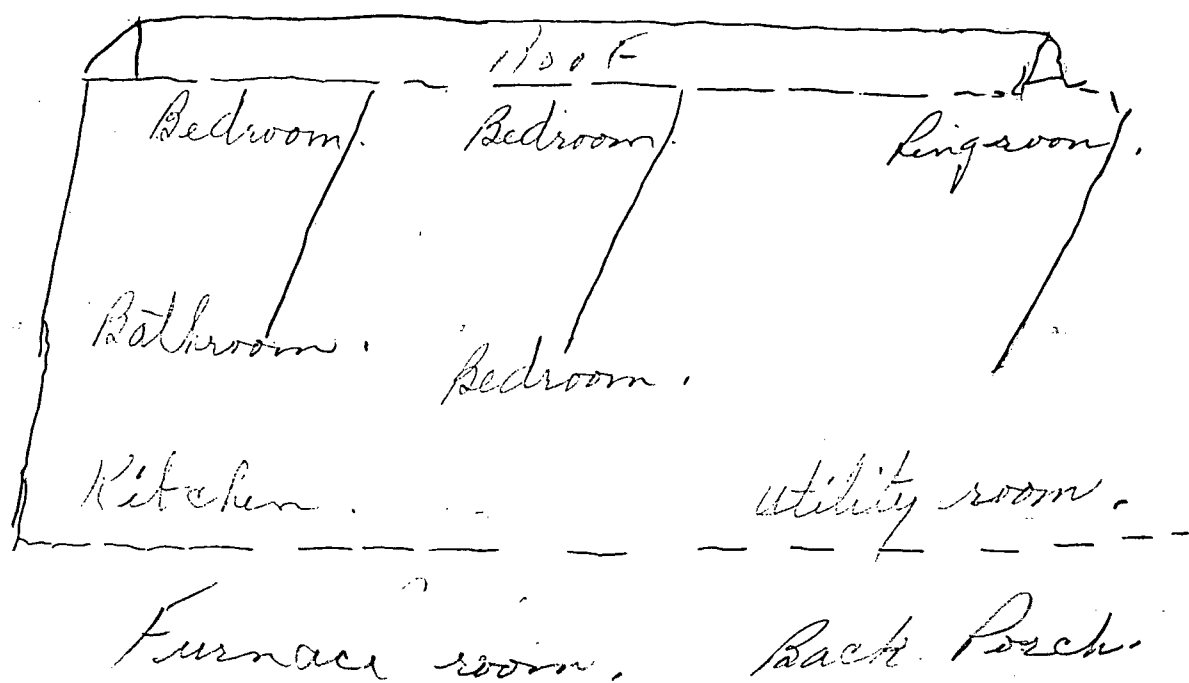 Roof
Bedroom. Bedroom. Ringroon.
Bathroom. Bedroom.
Kitchen. utility room.
Furnace room. Back Porch.